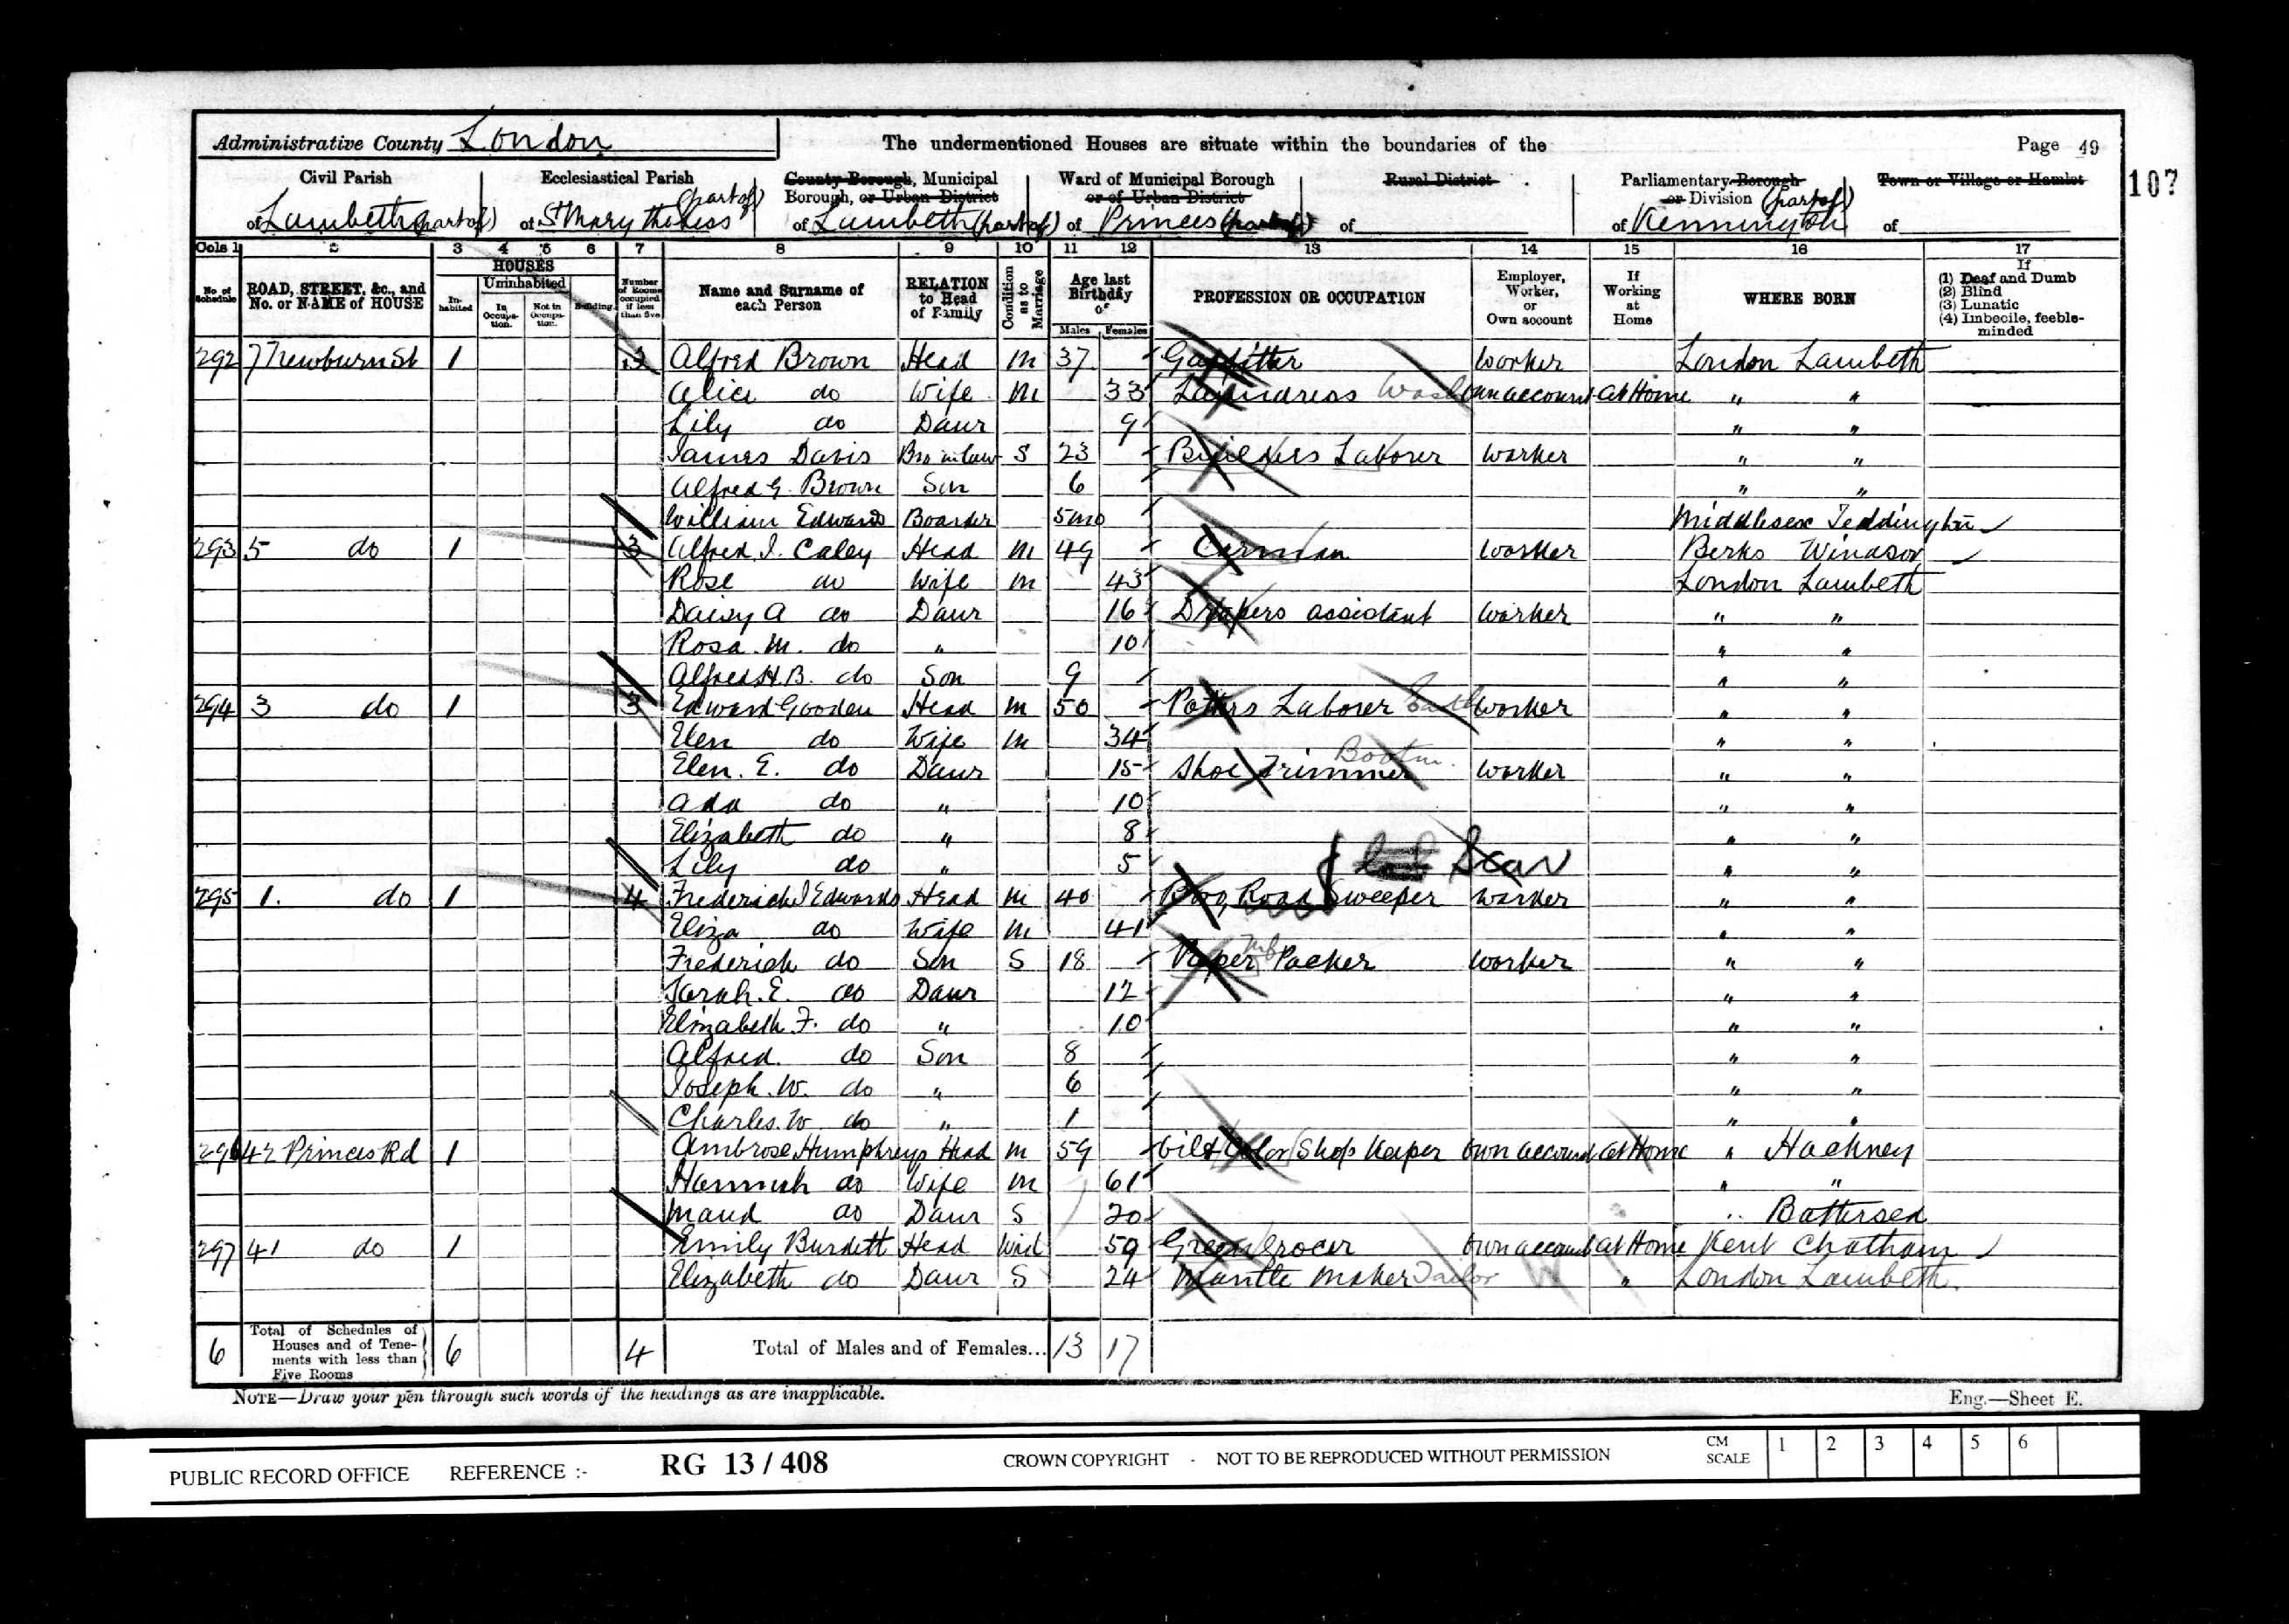 Administrative County London
The undermentioned Houses are situate within the boundaries of the
Page 49
107
Civil Parish
of Lambeth (part of)
Ecclesiastical Parish
of St Mary the Less (part of)
County Borough, Municipal Borough, or Urban District
of Lambeth (part of)
Ward of Municipal Borough or of Urban District
of Princes (part of)
Rural District
of
Parliamentary Borough or Division
of Kennington (part of)
Town or Village or Hamlet
of
Cols 1 2 3 4 5 6 7 8 9 10 11 12 13 14 15 16 17
No. of Schedule
ROAD, STREET, &c., and No. or NAME of HOUSE
HOUSES
Inhabited
Uninhabited
In Occupation.
Not in Occupation.
Building
Number of Rooms occupied if less than five
Name and Surname of each Person
RELATION to Head of Family
Condition as to Marriage
Age last Birthday of
Males Females
PROFESSION OR OCCUPATION
Employer, Worker, or Own account
If Working at Home
WHERE BORN
If
(1) Deaf and Dumb
(2) Blind
(3) Lunatic
(4) Imbecile, feeble-minded
292 7 Newburn St 1 3 Alfred Brown Head M 37 Gasfitter Worker London Lambeth
Alice do Wife M 33 Laundress Wash Own account At Home " "
Lily do Daur 9 " "
James Davis Bro in law S 23 Builders Laborer Worker " "
Alfred G. Brown Son 6 " "
William Edwards Boarder 5mo Middlesex Teddington
293 5 do 1 3 Alfred J. Caley Head M 49 Carman Worker Berks Windsor
Rose do Wife M 43 London Lambeth
Daisy A do Daur 16 Drapers assistant Worker " "
Rosa. M. do " 10 " "
Alfred H. B. do Son 9 " "
294 3 do 1 3 Edward Gooden Head M 50 Potters Laborer Worker " "
Elen do Wife M 34 " "
Elen. E. do Daur 15 Shoe Trimmer Boot m. Worker " "
Ada do " 10 " "
Elizabeth do " 8 " "
Lily do " 5 " "
Scav
295 1. do 1 4 Frederick J Edwards Head M 40 Road Sweeper Worker " "
Eliza do Wife M 41 " "
Frederick do Son S 18 Paper Packer Worker " "
Sarah. E. do Daur 12 " "
Elizabeth F. do " 10 " "
Alfred. do Son 8 " "
Joseph. W. do " 6 " "
Charles. W. do " 1 " "
296 42 Princes Rd 1 Ambrose Humphreys Head M 59 Oil & Color Shop Keeper Own account At Home " Hackney
Hannah do Wife M 61 " "
Maud do Daur S 20 " Battersea
297 41 do 1 Emily Burdett Head Wid 59 Green Grocer Own account At Home Kent Chatham
Elizabeth do Daur S 24 Mantle Maker Tailor " London Lambeth.
6 Total of Schedules of Houses and of Tenements with less than Five Rooms 6 4 Total of Males and of Females... 13 17
NOTE—Draw your pen through such words of the headings as are inapplicable.
Eng.—Sheet E.
PUBLIC RECORD OFFICE REFERENCE :- RG 13 / 408 CROWN COPYRIGHT - NOT TO BE REPRODUCED WITHOUT PERMISSION
CM SCALE 1 2 3 4 5 6